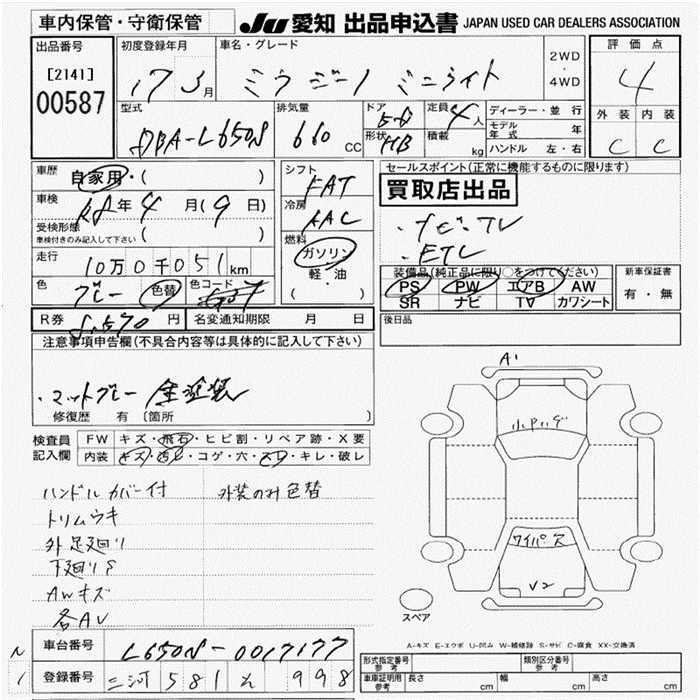 車内保管・守衛保管
JU 愛知 出品申込書 JAPAN USED CAR DEALERS ASSOCIATION
出品番号
[2141]
00587
初度登録年月
17 3月
車名・グレード
ミラ ジーノ ミニライト
2WD
・
4WD
評価点
4
外装 内装
C C
型式
DBA-L650S
排気量
660 CC
ドア
5D
形状
HB
定員
4人
積載 kg
ディーラー・並行
モデル年式 年
ハンドル 左・右
車歴
自家用・( )
車検
R8年 4月(9日)
受検形態
車検付きのみ記入して下さい ( )
走行
10万0千051km
色
グレー 色替
色コード
シフト
FAT
冷房
AAC
燃料
ガソリン
軽・油
( )
セールスポイント(正常に機能するものに限ります)
買取店出品
・ナビ・TV
・ETC
装備品(純正品に限り○をつけてください)
PS PW エアB AW
SR ナビ TV カワシート
新車保証書
有・無
R券 8,570円
名変通知期限 月 日
後日品
注意事項申告欄(不具合内容等は具体的に記入して下さい)
・マットグレー 全塗装
修復歴 有 〔箇所
検査員
記入欄
FW キズ・飛石・ヒビ割・リペア跡・X要
内装 キズ・汚レ・コゲ・穴・スレ・キレ・破レ
ハンドルカバー付
外装のみ色替
トリムウキ
外足廻りS
下廻りS
AWキズ
各AV
A1
小Pハゲ
ワイパーレス
V2
スペア
A-キズ E-エクボ U-凹み W-補修跡 S-サビ C-腐食 XX-交換済
車台番号 L650S-0017177
登録番号 三河 581 え 998
N
1
形式指定番号
参考
類別区分番号
参考
車庫証明用
参考
長さ cm 幅 cm 高さ cm